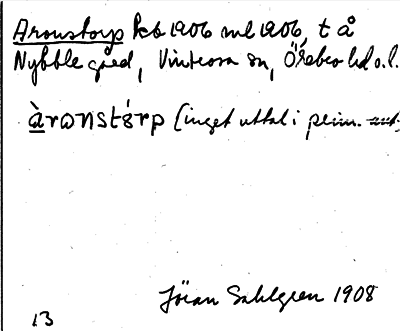 Aronstorp Kb 1906 ml 1906, t å
Nybble gård, Vintrosa sn, Örebro hd o. l.
àrωnstórp (inget uttal i prim.
Jöran Sahlgren 1908
13